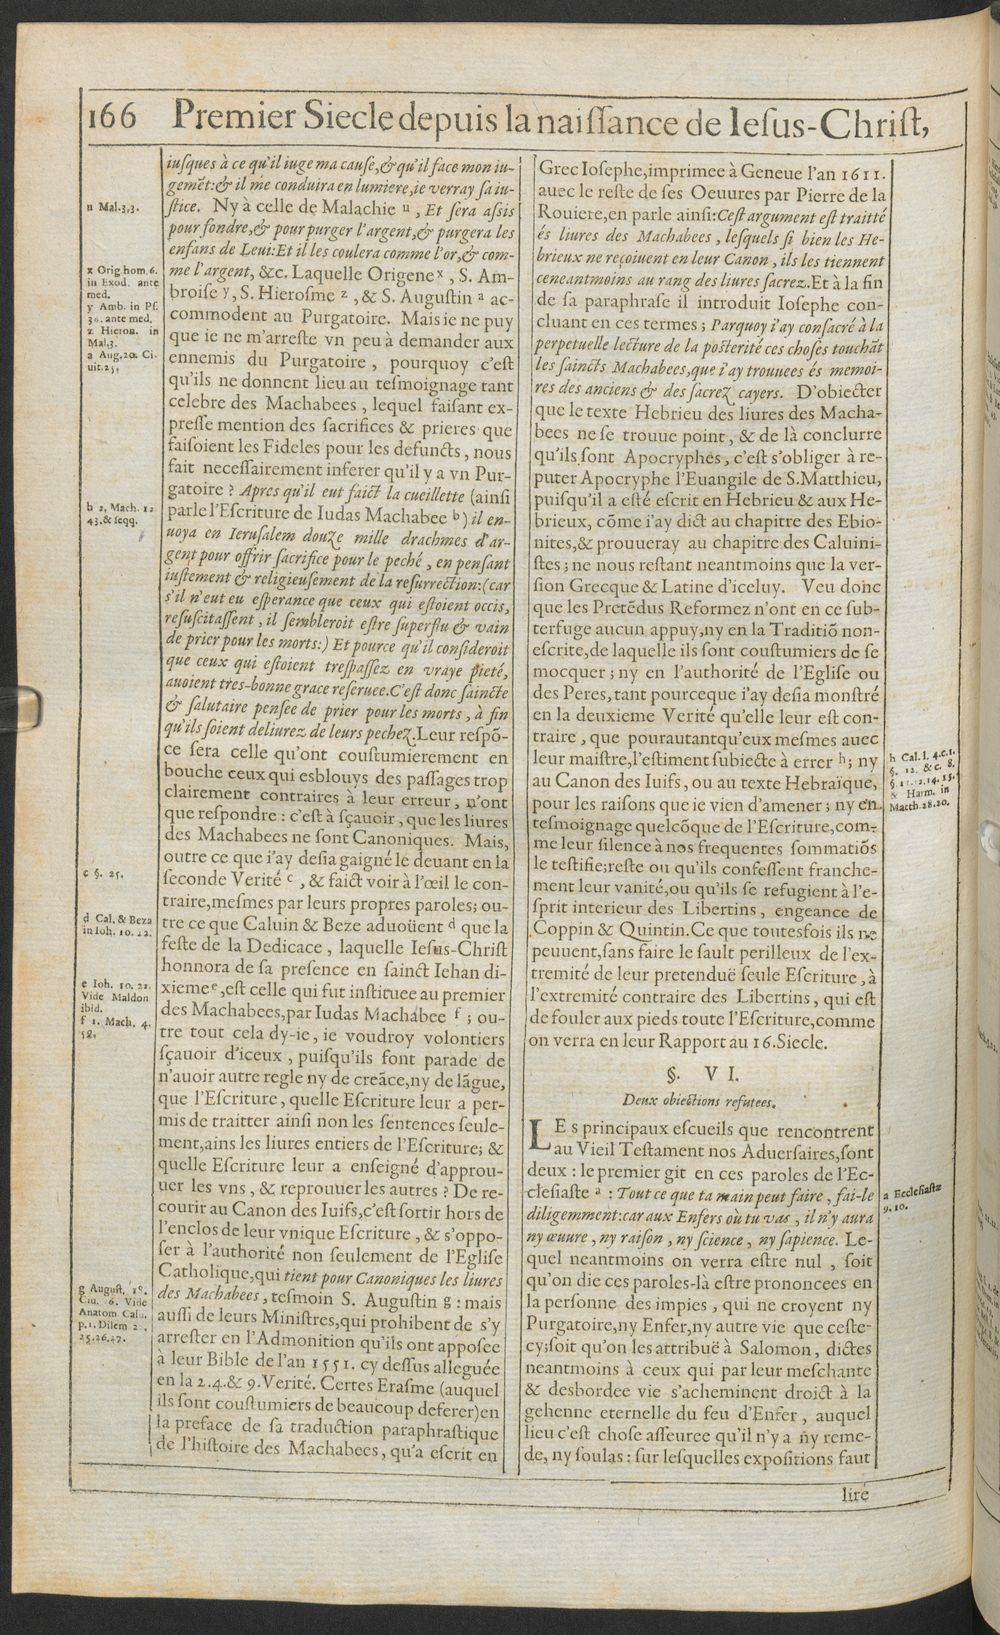 166 Premier Siecle depuis la naiſſance de Ieſus-Chriſt,
iuſques à ce qu'il iuge ma cauſe,& qu'il face mon iu-
gemēt:& il me conduira en lumiere,ie verray ſa iu-
ſtice. Ny à celle de Malachie u , Et ſera aſsis
pour fondre,& pour purger l'argent,& purgera les
enfans de Leui:Et il les coulera comme l'or,& com-
me l'argent, &c. Laquelle Origene x , S. Am-
broiſe y, S. Hieroſme z , & S. Auguſtin a ac-
commodent au Purgatoire. Mais ie ne puy
que ie ne m'arreſte vn peu à demander aux
ennemis du Purgatoire , pourquoy c'eſt
qu'ils ne donnent lieu au teſmoignage tant
celebre des Machabees , lequel faiſant ex-
preſſe mention des ſacrifices & prieres que
faiſoient les Fideles pour les defuncts , nous
fait neceſſairement inferer qu'il y a vn Pur-
gatoire ? Apres qu'il eut faict la cueillette (ainſi
parle l'Eſcriture de Iudas Machabee b ) il en-
uoya en Ieruſalem douze mille drachmes d'ar-
gent pour offrir ſacrifice pour le peché , en penſant
iuſtement & religieuſement de la reſurrection:(car
s'il n'eut eu eſperance que ceux qui eſtoient occis,
reſuſcitaſſent , il ſembleroit eſtre ſuperflu & vain
de prier pour les morts:) Et pource qu'il conſideroit
que ceux qui eſtoient treſpaſſez en vraye pieté,
auoient tres-bonne grace reſeruee.C'eſt donc ſaincte
& ſalutaire penſee de prier pour les morts , à fin
qu'ils ſoient deliurez de leurs pechez.Leur reſpō-
ce ſera celle qu'ont couſtumierement en
bouche ceux qui esblouys des paſſages trop
clairement contraires à leur erreur , n'ont
que reſpondre : c'eſt à ſçauoir , que les liures
des Machabees ne ſont Canoniques. Mais,
outre ce que i'ay deſia gaigné le deuant en la
ſeconde Verité c , & faict voir à l'œil le con-
traire,meſmes par leurs propres paroles; ou-
tre ce que Caluin & Beze aduoüent d que la
feſte de la Dedicace , laquelle Ieſus-Chriſt
honnora de ſa preſence en ſainct Iehan di-
xieme e ,eſt celle qui fut inſtituee au premier
des Machabees,par Iudas Machabee f ; ou-
tre tout cela dy-ie, ie voudroy volontiers
ſçauoir d'iceux , puiſqu'ils font parade de
n'auoir autre regle ny de creāce,ny de lāgue,
que l'Eſcriture , quelle Eſcriture leur a per-
mis de traitter ainſi non les ſentences ſeule-
ment,ains les liures entiers de l'Eſcriture; &
quelle Eſcriture leur a enſeigné d'approu-
uer les vns , & reprouuer les autres ? De re-
courir au Canon des Iuifs,c'eſt ſortir hors de
l'enclos de leur vnique Eſcriture , & s'oppo-
ſer à l'authorité non ſeulement de l'Egliſe
Catholique,qui tient pour Canoniques les liures
des Machabees , teſmoin S. Auguſtin g : mais
auſſi de leurs Miniſtres,qui prohibent de s'y
arreſter en l'Admonition qu'ils ont appoſee
à leur Bible de l'an 1551. cy deſſus alleguée
en la 2.4.& 9.Verité. Certes Eraſme (auquel
ils ſont couſtumiers de beaucoup deferer)en
la preface de ſa traduction paraphraſtique
de l'hiſtoire des Machabees, qu'a eſcrit en
u Mal.3,3.
x Orig hom 6.
in Exod. ante
med.
y Amb. in Pſ.
36. ante med.
z Hieron. in
Mal.3.
a Aug.20. Ci-
uit.25,
b 2, Mach. 12
43.& ſeqq.
c §. 25.
d Cal. & Beza
in Ioh. 10. 22.
e Ioh. 10. 22.
Vide Maldon
ibid.
f 1. Mach. 4.
58.
g Auguſt. 18.
Vide
Anatom
p.1. Dilem
25.26.27.
Grec Ioſephe,imprimee à Geneue l'an 1611.
auec le reſte de ſes Oeuures par Pierre de la
Rouiere,en parle ainſi:Ceſt argument eſt traitté
és liures des Machabees , leſquels ſi bien les He-
brieux ne reçoiuent en leur Canon , ils les tiennent
ceneantmoins au rang des liures ſacrez.Et à la fin
de ſa paraphraſe il introduit Ioſephe con-
cluant en ces termes ; Parquoy i'ay conſacré à la
perpetuelle lecture de la poſterité ces choſes touchāt
les ſaincts Machabees,que i'ay trouuees és memoi-
res des anciens & des ſacrez cayers. D'obiecter
que le texte Hebrieu des liures des Macha-
bees ne ſe trouue point , & de là conclurre
qu'ils ſont Apocryphes , c'eſt s'obliger à re-
puter Apocryphe l'Euangile de S.Matthieu,
puiſqu'il a eſté eſcrit en Hebrieu & aux He-
brieux, cōme i'ay dict au chapitre des Ebio-
nites,& prouueray au chapitre des Caluini-
ſtes ; ne nous reſtant neantmoins que la ver-
ſion Grecque & Latine d'iceluy. Veu donc
que les Pretēdus Reformez n'ont en ce ſub-
terfuge aucun appuy,ny en la Traditiō non-
eſcrite,de laquelle ils ſont couſtumiers de ſe
mocquer ; ny en l'authorité de l'Egliſe ou
des Peres, tant pource que i'ay deſia monſtré
en la deuxieme Verité qu'elle leur eſt con-
traire , que pourautantqu'eux meſmes auec
leur maiſtre,l'eſtiment ſubiecte à errer h ; ny
au Canon des Iuifs , ou au texte Hebraïque,
pour les raiſons que ie vien d'amener ; ny en
teſmoignage quelcōque de l'Eſcriture,com-
me leur ſilence à nos frequentes ſommatiōs
le teſtifie;reſte ou qu'ils confeſſent franche-
ment leur vanité,ou qu'ils ſe refugient à l'e-
ſprit interieur des Libertins , engeance de
Coppin & Quintin.Ce que toutesfois ils ne
peuuent,ſans faire le ſault perilleux de l'ex-
tremité de leur pretenduë ſeule Eſcriture , à
l'extremité contraire des Libertins , qui eſt
de fouler aux pieds toute l'Eſcriture,comme
on verra en leur Rapport au 16.Siecle.
§. VI.
Deux obiections refutees.
LEs principaux eſcueils que rencontrent
au Vieil Teſtament nos Aduerſaires,ſont
deux : le premier git en ces paroles de l'Ec-
cleſiaſte a : Tout ce que ta main peut faire , fai-le
diligemment:car aux Enfers où tu vas , il n'y aura
ny œuure , ny raiſon , ny ſcience , ny ſapience. Le-
quel neantmoins on verra eſtre nul , ſoit
qu'on die ces paroles-là eſtre prononcees en
la perſonne des impies , qui ne croyent ny
Purgatoire,ny Enfer,ny autre vie que ceſte-
cy;ſoit qu'on les attribuë à Salomon , dictes
neantmoins à ceux qui par leur meſchante
& desbordee vie s'acheminent droict à la
gehenne eternelle du feu d'Enfer , auquel
lieu c'eſt choſe aſſeuree qu'il n'y a ny reme-
de, ny ſoulas : ſur leſquelles expoſitions faut
h Cal. l. 4.c.1.
§. 12. & c. 8.
§.11.12.14.15.
& Harm. in
Matth.28.20.
a Eccleſiaſtæ
9.10.
lire